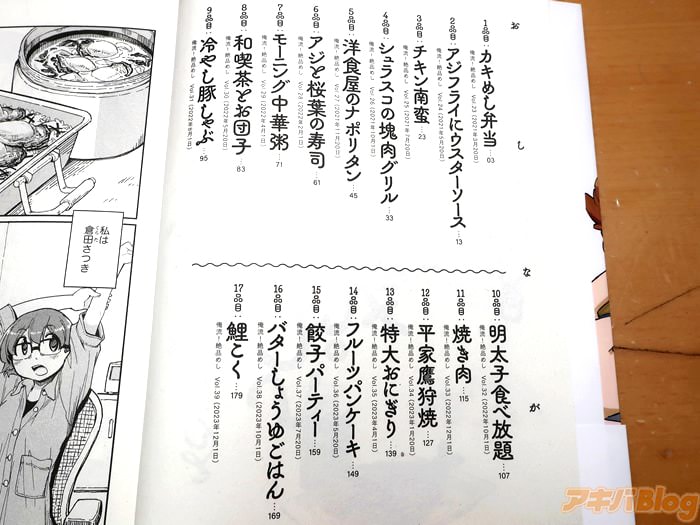 おしながき
1品目：カキめし弁当…03
俺流！絶品めし Vol.23
2品目：アジフライにウスターソース…13
俺流！絶品めし Vol.24 (2021年5月20日)
3品目：チキン南蛮…23
俺流！絶品めし Vol.25 (2021年7月20日)
4品目：シュラスコの塊肉グリル…33
俺流！絶品めし Vol.26 (2021年10月1日)
5品目：洋食屋のナポリタン…45
俺流！絶品めし Vol.27
6品目：アジと桜葉の寿司…61
俺流！絶品めし Vol.28 (2022年2月1日)
7品目：モーニング中華粥…71
俺流！絶品めし Vol.29 (2022年4月1日)
8品目：和喫茶とお団子…83
俺流！絶品めし Vol.30
9品目：冷やし豚しゃぶ…95
俺流！絶品めし Vol.31 (2022年8月1日)
10品目：明太子食べ放題…107
俺流！絶品めし Vol.32 (2022年10月1日)
11品目：焼き肉…115
俺流！絶品めし Vol.33 (2022年12月1日)
12品目：平家鷹狩焼…127
俺流！絶品めし Vol.34 (2023年1月20日)
13品目：特大おにぎり…139
俺流！絶品めし Vol.35 (2023年4月1日)
14品目：フルーツパンケーキ…149
俺流！絶品めし Vol.36 (2023年5月20日)
15品目：餃子パーティー…159
俺流！絶品めし Vol.37 (2023年7月20日)
16品目：バターじょうゆごはん…169
俺流！絶品めし Vol.38 (2023年10月1日)
17品目：鯉こく…179
俺流！絶品めし Vol.39 (2023年12月1日)
私は
倉田さつき
アキバBlog